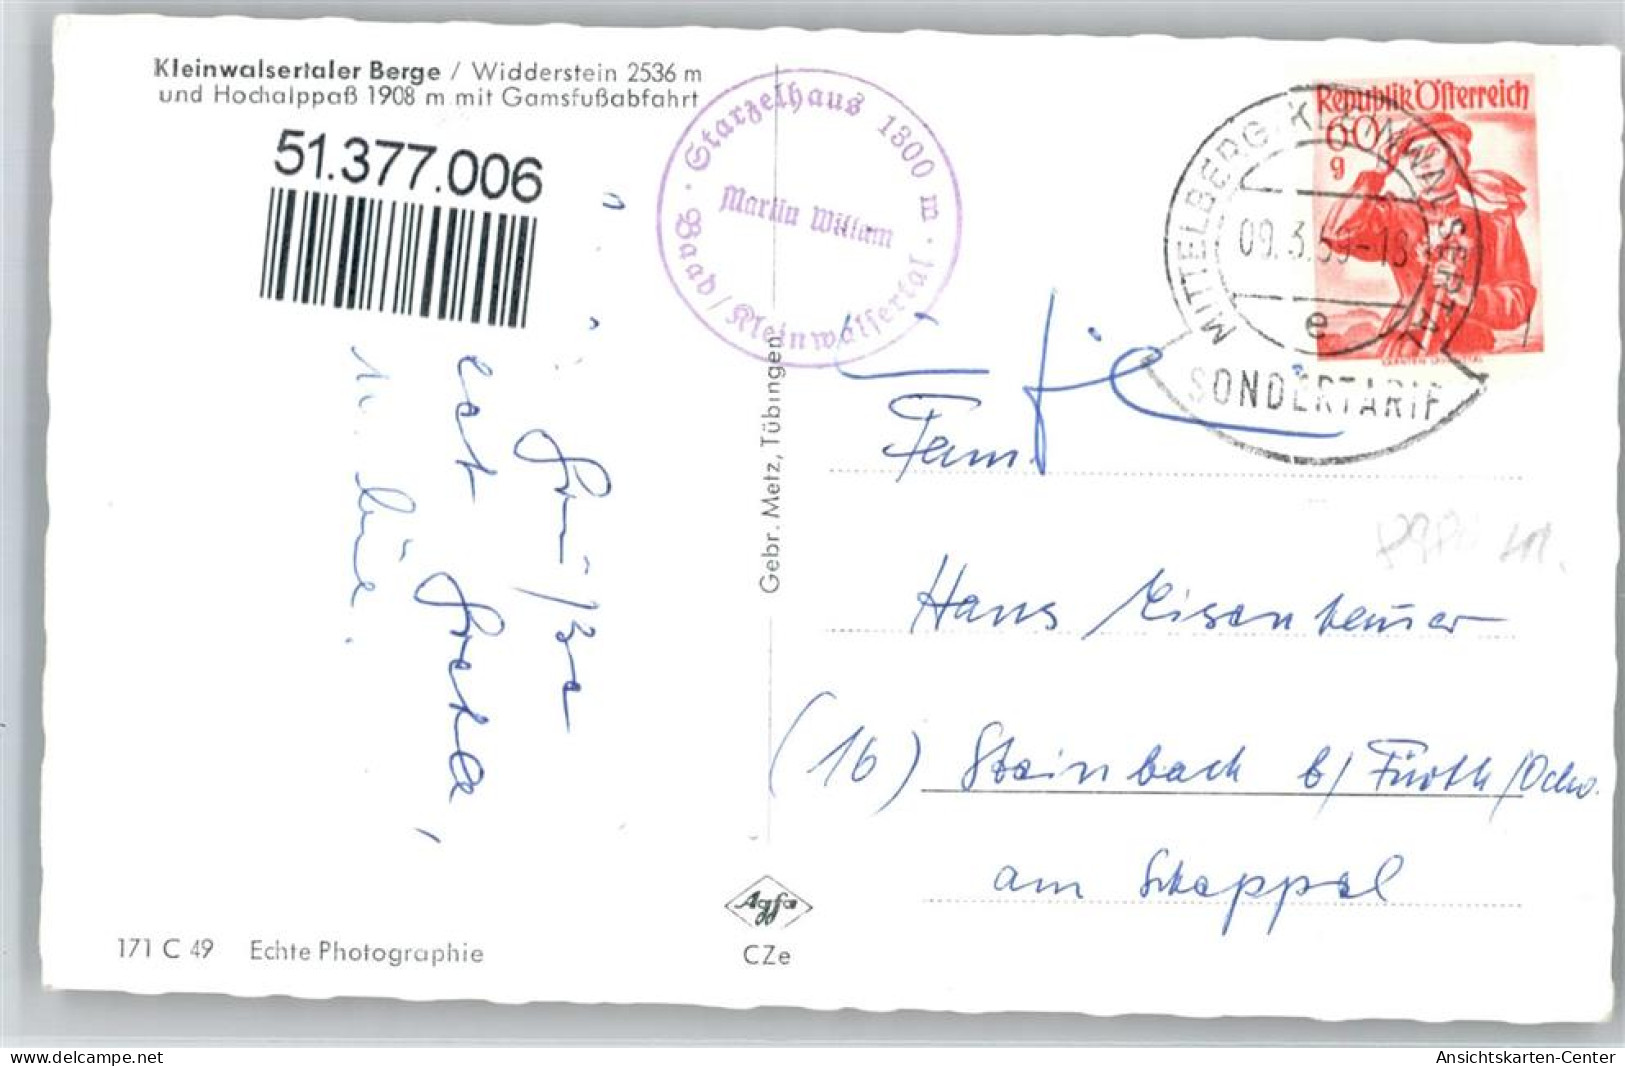 Kleinwalsertaler Berge / Widderstein 2536 m
und Hochalppaß 1908 m mit Gamsfußabfahrt
51.377.006
Starzelhaus 1300 m · Baad / Kleinwalsertal ·
Martin Willam
Republik Österreich
60
g
MITTELBERG KLEINWALSERTAL
e
SONDERTARIF
Gebr. Metz, Tübingen
Fam.
Hans Eisenhauer
(16) Steinbach b/ Fürth /Odw.
am Schappel
Grüße
Agfa
CZe
171 C 49 Echte Photographie
www.delcampe.net
Ansichtskarten-Center